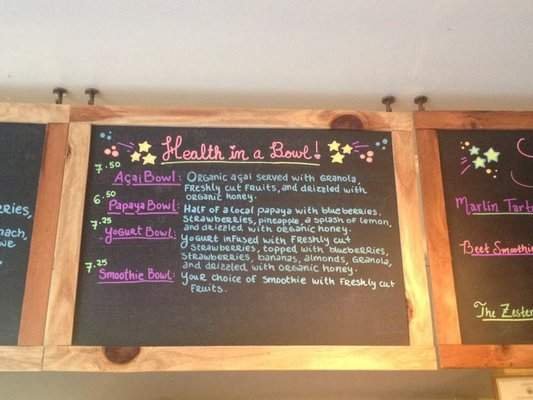 Health in a Bowl!
7.50
Açai Bowl: Organic açai served with granola,
freshly cut fruits, and drizzled with
organic honey.
6.50
Papaya Bowl: Half of a local papaya with blueberries,
strawberries, pineapple, a splash of lemon,
and drizzled with organic honey.
7.25
Yogurt Bowl: Yogurt infused with freshly cut
strawberries, topped with blueberries,
strawberries, bananas, almonds, granola,
and drizzled with organic honey.
7.25
Smoothie Bowl: Your choice of smoothie with freshly cut
fruits.
Marlin Tart
Beet Smoothie
The Zester